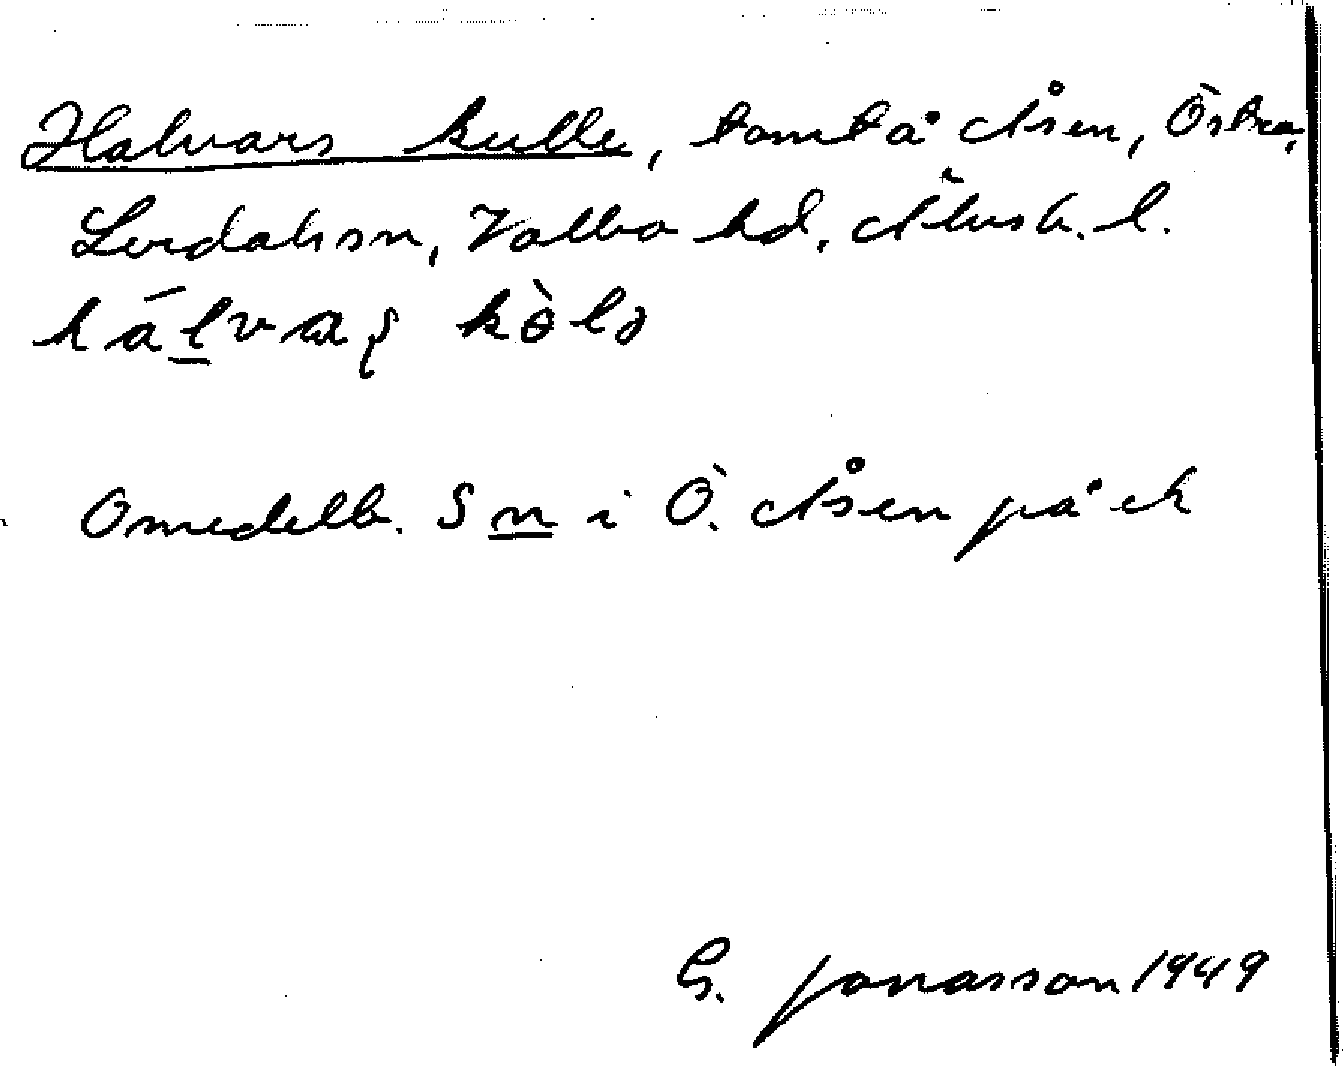 Halvars kulle, tomt å Åsen, Östra,
Lerdals sn, Valbo hd, Älvsb. l.
hálvaş kòlə
Omedelb. S n i Ö. Åsen på ek
G. Jonasson 1949